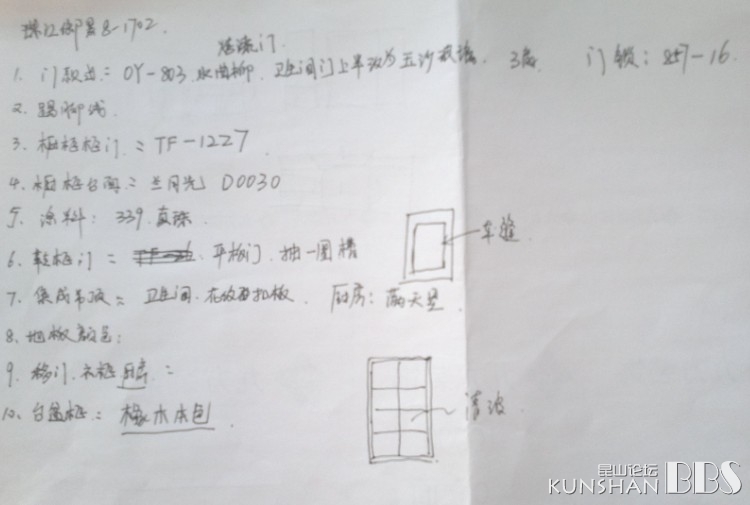 珠江御景8-1702.
1. 门款式：OY-803, 水曲柳. 卫生间门上半为五沙玻璃. 3扇 门锁: 857-16.
2. 踢脚线
3. 橱柜柜门：TF-1227
4. 橱柜台面：兰月光 D0030
5. 涂料: 339. 真珠.
6. 鞋柜门：平板门. 抽一圈槽
7. 集成吊顶：卫生间. 扣板. 厨房: 满天星
8. 地板颜色:
9. 移门. 衣柜 厨房：
10. 台盆柜: 橡木本色.
昆山论坛
KUNSHAN BBS